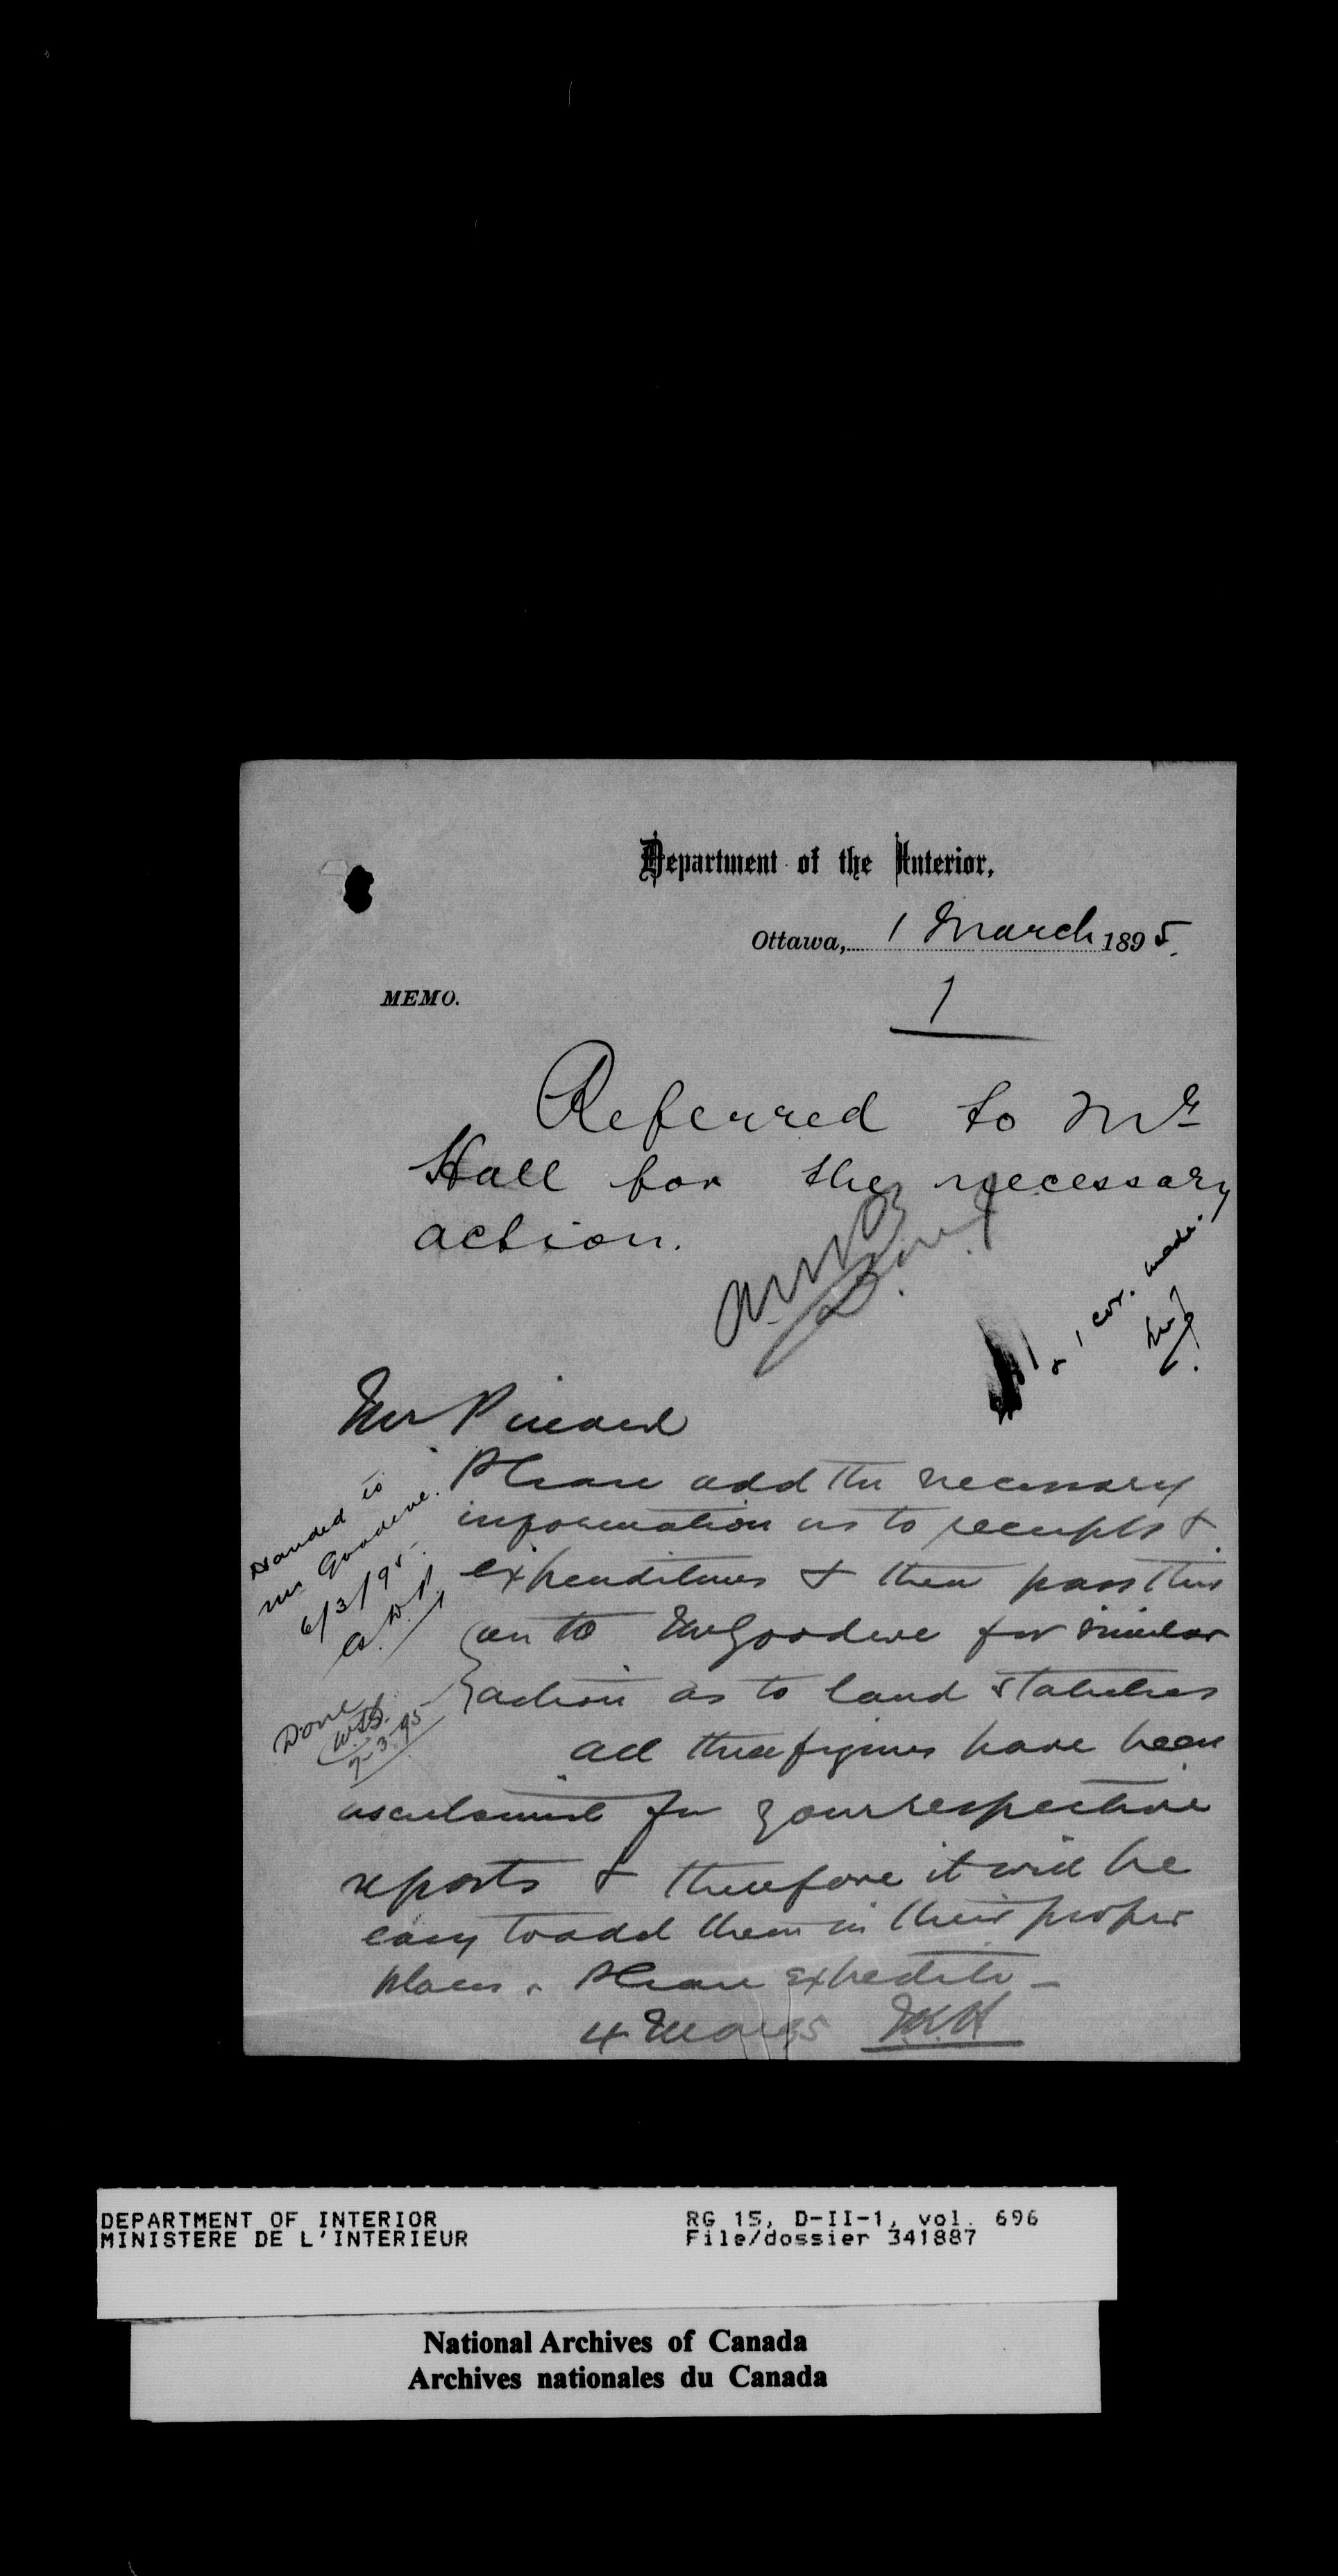 Department of the Interior,
Ottawa, 1 March 1895.
MEMO.
1
Referred to Mr
Hall for the necessary
action.
& 1 cor. made.
Mr Pinard
Please add the necessary
information as to receipts &
expenditures & then pass this
on to Mr Goodeve for similar
action as to land statistics
All these figures have been
ascertained for your respective
reports & therefore it will be
easy to add them in their proper
places. Please expedite —
4 Mar 95
Handed to
Mr Goodeve.
6/3/95.
Done
7-3-95
DEPARTMENT OF INTERIOR
MINISTERE DE L'INTERIEUR
RG 15, D-II-1, vol. 696
File/dossier 341887
National Archives of Canada
Archives nationales du Canada